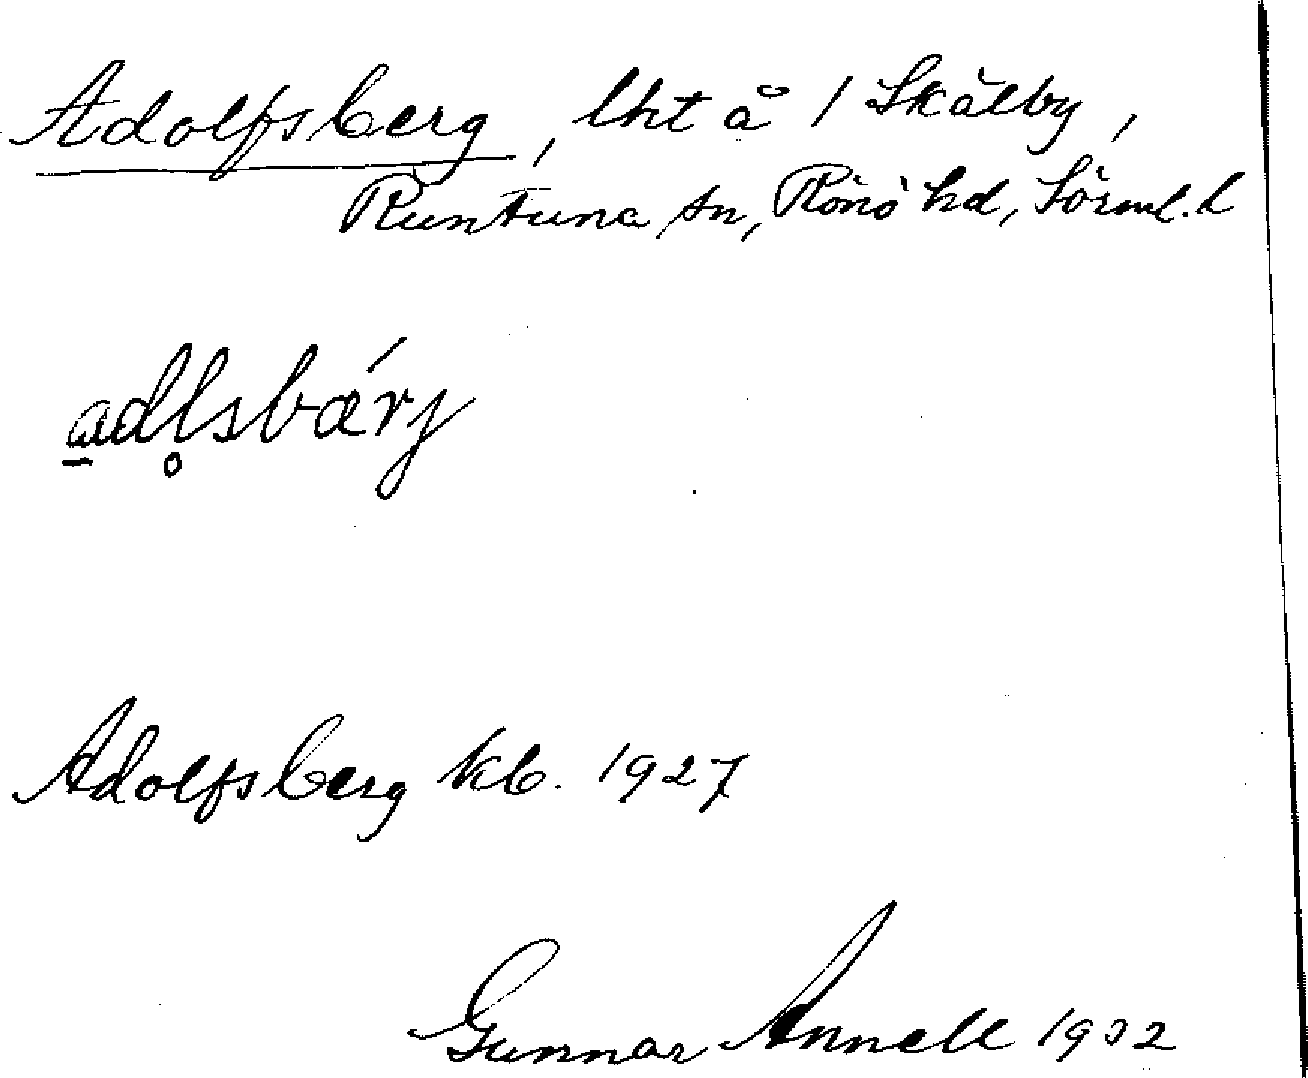 Adolfsberg, lht å 1 Skälby,
Runtuna sn, Rönö hd, Sörml. l
adl̥sbærj
Adolfsberg kb. 1927
Gunnar Annell 1932